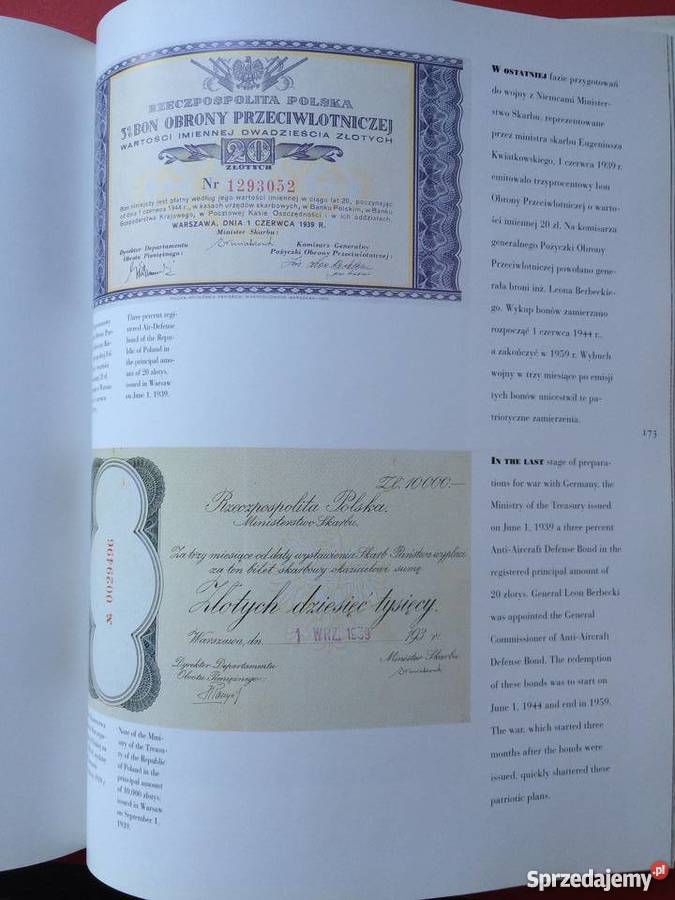 RZECZPOSPOLITA POLSKA
3% BON OBRONY PRZECIWLOTNICZEJ
WARTOŚCI IMIENNEJ DWADZIEŚCIA ZŁOTYCH
20
ZŁOTYCH
Nr 1293052
Bon niniejszy jest płatny według jego wartości imiennej w ciągu lat 20, począwszy
od dnia 1 czerwca 1944 r., w kasach urzędów skarbowych, w Banku Polskim, w Banku
Gospodarstwa Krajowego, w Pocztowej Kasie Oszczędności i w ich oddziałach.
WARSZAWA, DNIA 1 CZERWCA 1939 R.
Minister Skarbu:
Dyrektor Departamentu
Obrotu Pieniężnego:
Komisarz Generalny
Pożyczki Obrony Przeciwlotniczej:
Three percent regi-
stered Air-Defense
bond of the Repu-
blic of Poland in
the principal amo-
unt of 20 zlotys,
issued in Warsaw
on June 1, 1939.
ZŁ. 10 000.—
Rzeczpospolita Polska.
Ministerstwo Skarbu.
Za trzy miesiące od daty wystawienia Skarb Państwa wypłaci
za ten bilet skarbowy okazicielowi sumę
Złotych dziesięć tysięcy.
Warszawa, dn. 1 WRZ. 1939 193 r.
Dyrektor Departamentu
Obrotu Pieniężnego:
Minister Skarbu
№ 0029496
Note of the Mini-
stry of the Treasu-
ry of the Republic
of Poland in the
principal amount
of 10,000 zlotys,
issued in Warsaw
on September 1,
1939.
W OSTATNIEJ fazie przygotowań
do wojny z Niemcami Minister-
stwo Skarbu, reprezentowane
przez ministra skarbu Eugeniusza
Kwiatkowskiego, 1 czerwca 1939 r.
emitowało trzyprocentowy bon
Obrony Przeciwlotniczej o warto-
ści imiennej 20 zł. Na komisarza
generalnego Pożyczki Obrony
Przeciwlotniczej powołano gene-
rała broni inż. Leona Berbeckie-
go. Wykup bonów zamierzano
rozpocząć 1 czerwca 1944 r.,
a zakończyć w 1959 r. Wybuch
wojny w trzy miesiące po emisji
tych bonów unicestwił te pa-
triotyczne zamierzenia.
173
IN THE LAST stage of prepara-
tions for war with Germany, the
Ministry of the Treasury issued
on June 1, 1939 a three percent
Anti-Aircraft Defense Bond in the
registered principal amount of
20 zlotys. General Leon Berbecki
was appointed the General
Commissioner of Anti-Aircraft
Defense Bond. The redemption
of these bonds was to start on
June 1, 1944 and end in 1959.
The war, which started three
months after the bonds were
issued, quickly shattered these
patriotic plans.
Sprzedajemy.pl